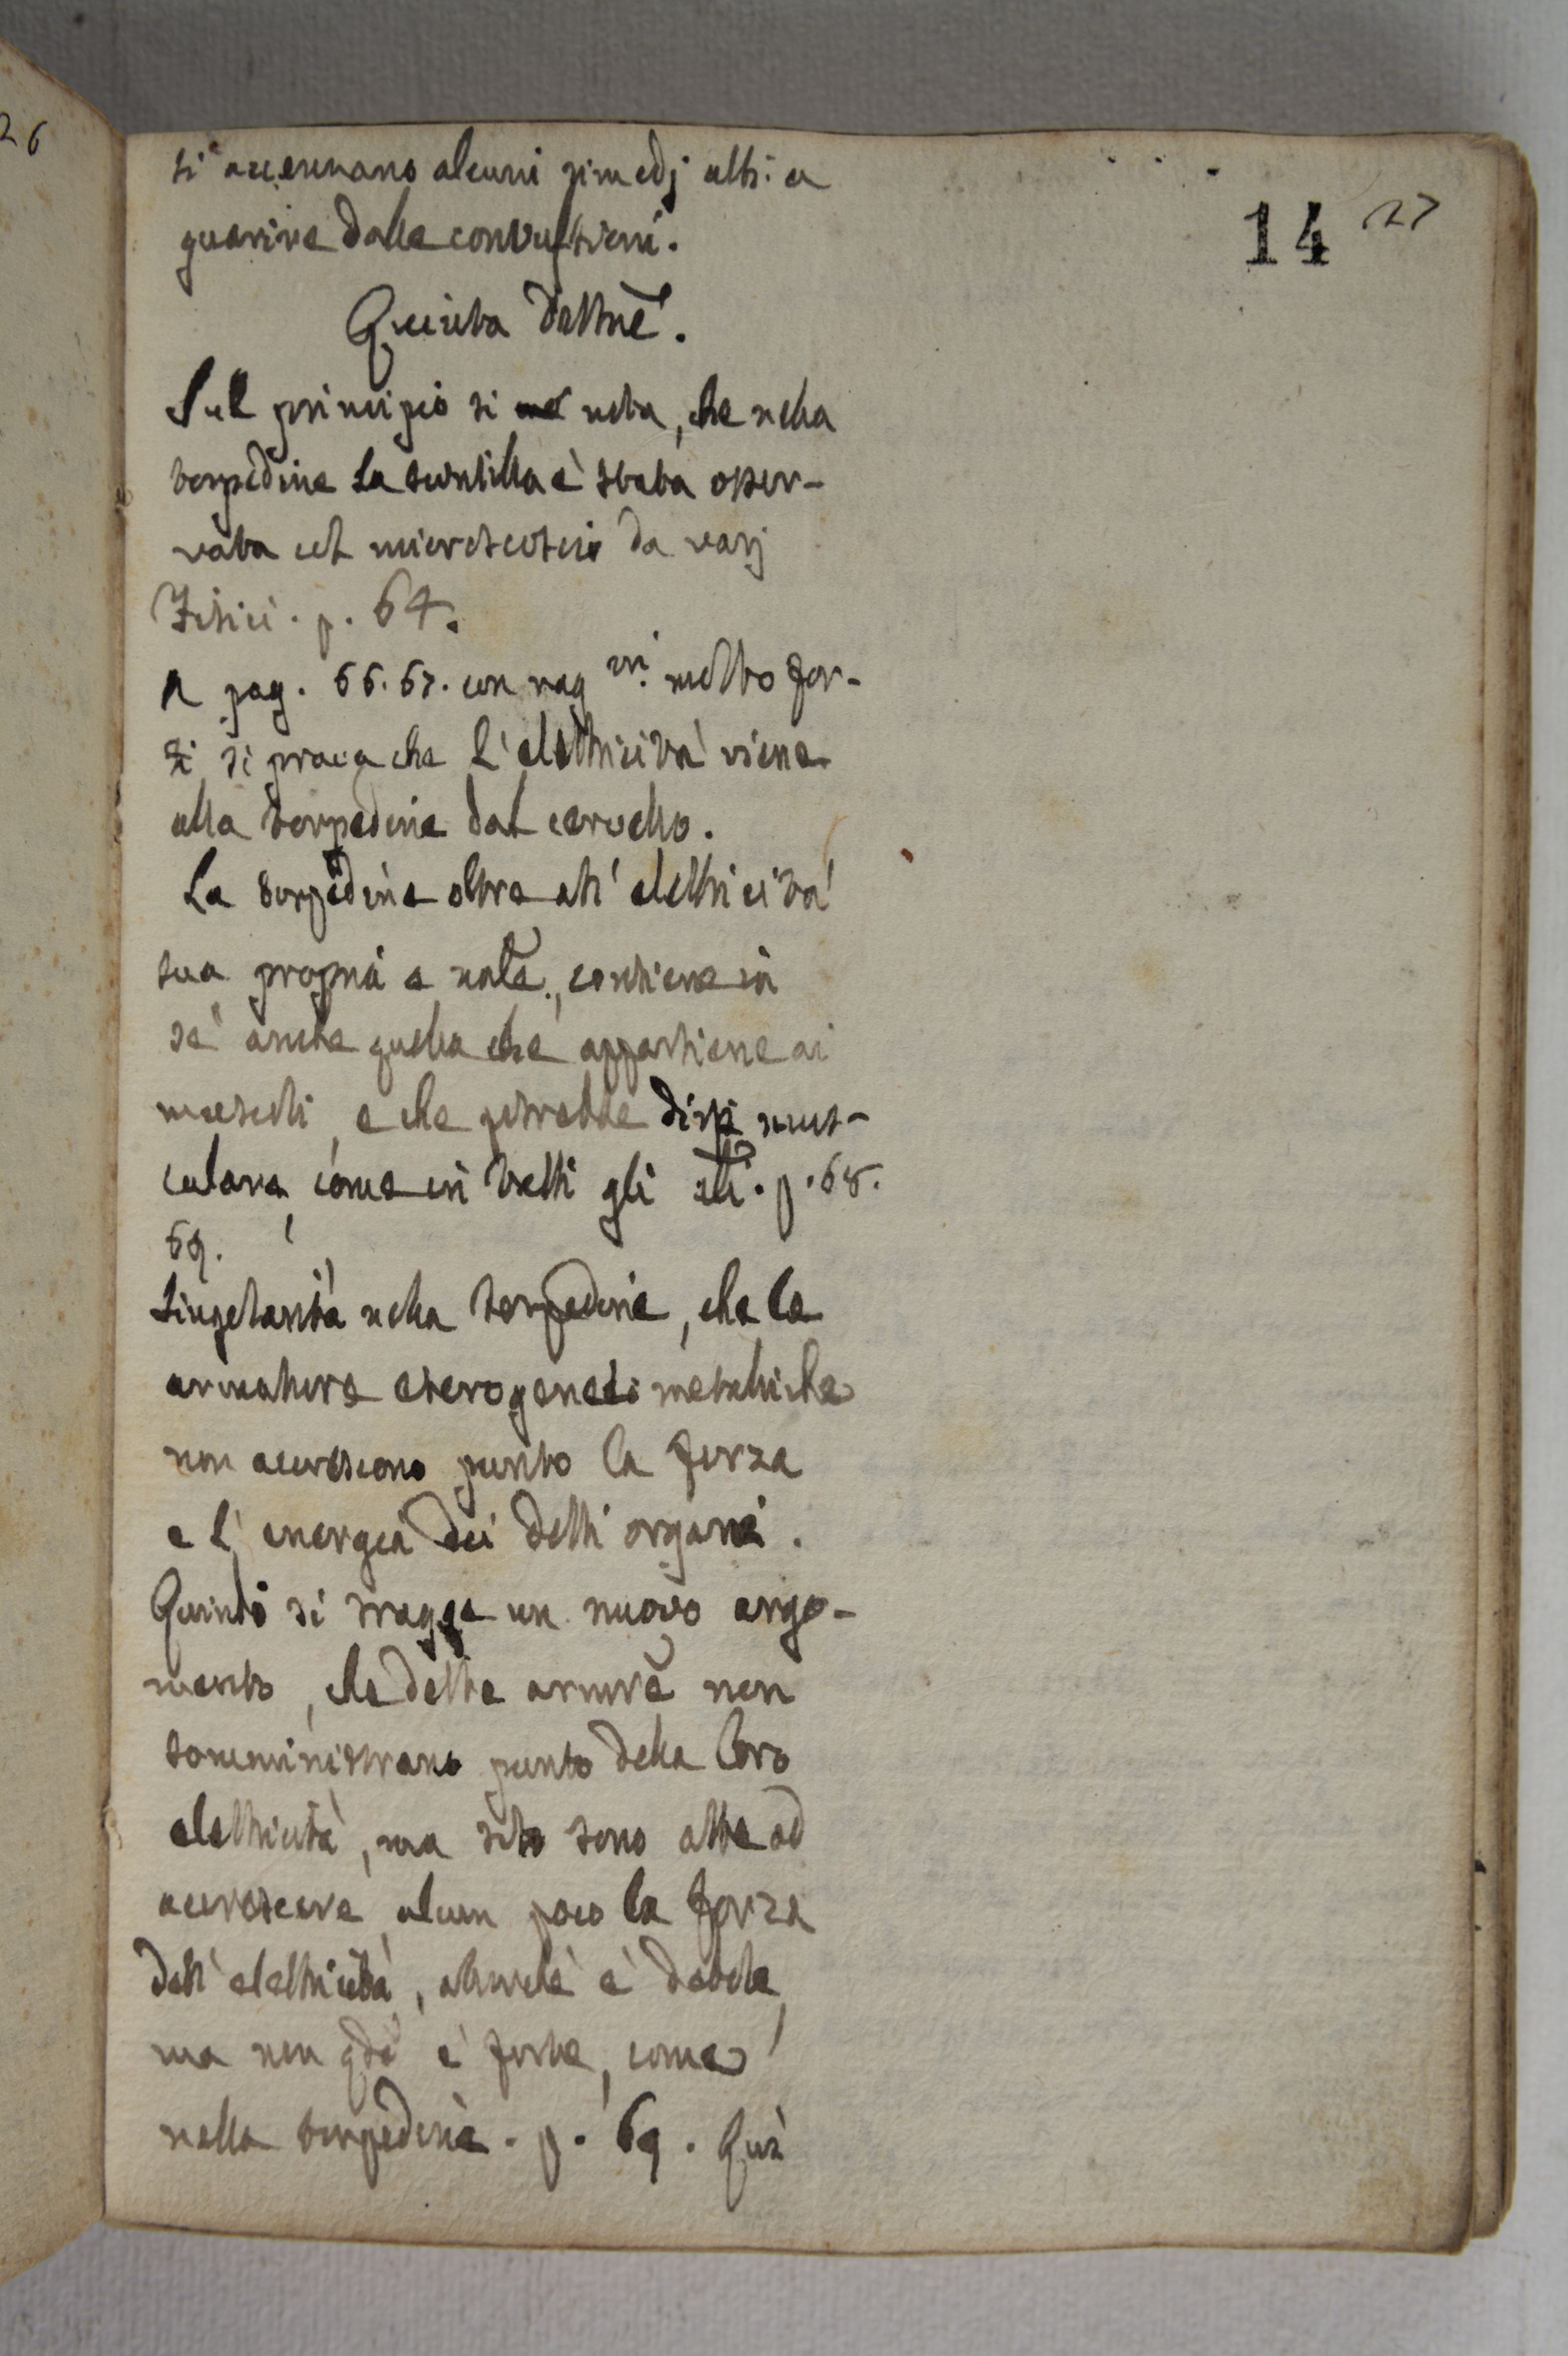 26
14 27
si accennano alcuni rimedj atti a
guarire dalle convulsioni.
Quinta dissttne.
Sul principio si nota, che nella
torpedine la scintilla è stata osser-
vata col microscopio da varj
Fisici. p. 64.
A pag. 66. 67. con rag.ni molto for-
ti si prova che l'elettricità viene
alla torpedine dal cervello.
La torpedine oltre all'elettricità
sua propria e nale., contiene in
se' anche quella che appartiene ai
muscoli, e che potrebbe dirsi mus-
culare, come in tutti gli alti. p. 68.
69.
Singolarità nella torpedine, che le
armature eterogenee metalliche
non accrescono punto la forza
e l'energia dei detti organi.
Quindi si tragge un nuovo argo-
mento, che dette armure non
somministrano punto della loro
elettricità, ma solo sono atte ad
accrescere alcun poco la forza
dell'elettricità, allorchè è debole,
ma non qdo è forte, come
nella torpedine. p. 69. Qui